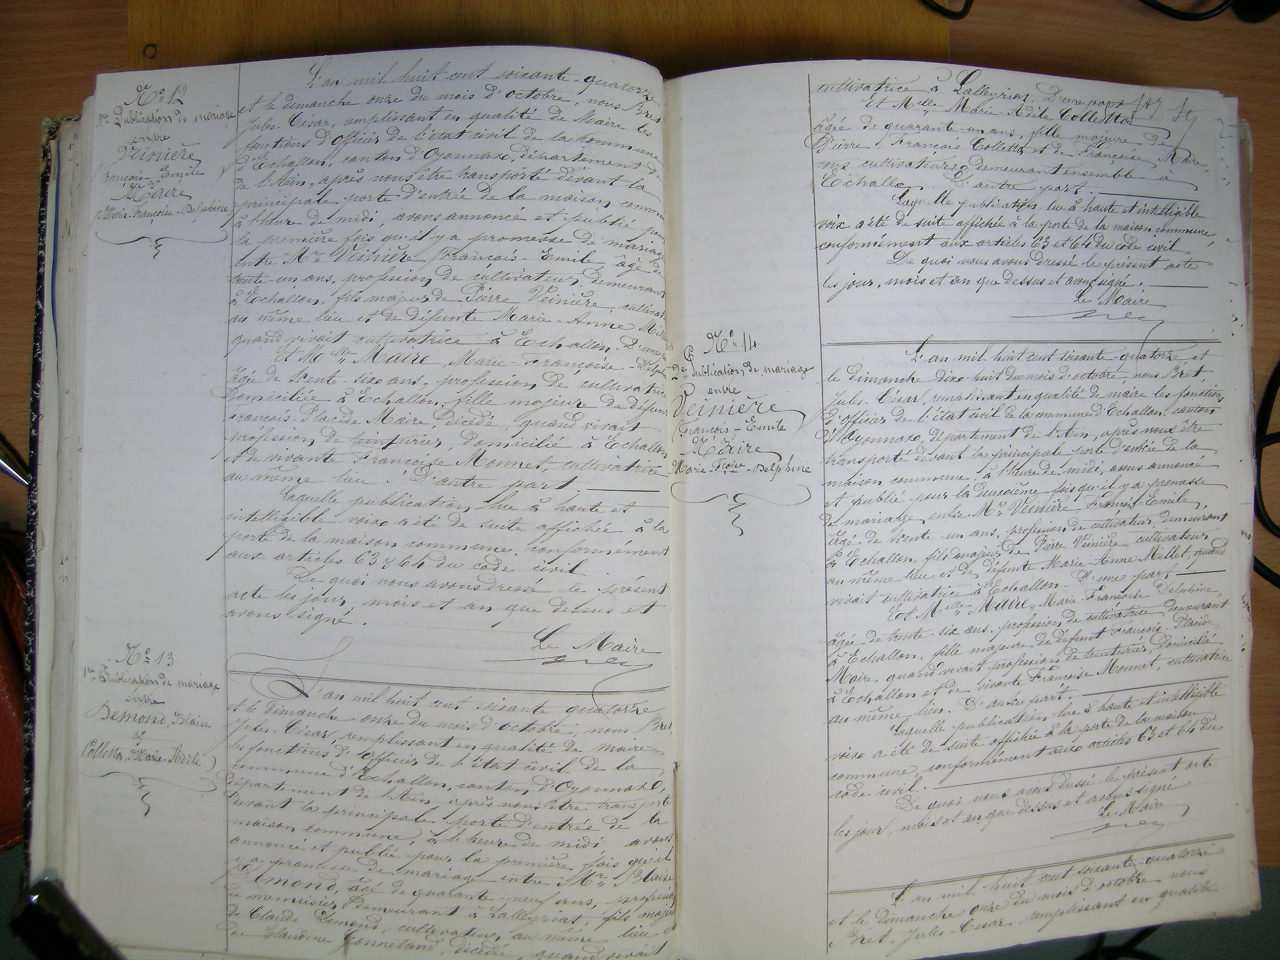 No 12
1re Publication de mariage
entre
Veinière
François-Emile
&
Maire
Marie-Françoise-Delphine
L'an mil huit cent soixante-quatorze
et le dimanche onze du mois d'octobre, nous Bret
Jules César, remplissant en qualité de Maire les
fonctions d'officier de l'état civil de la commune
d'Echallon, canton d'Oyonnax, département
de l'Ain, après nous être transporté devant la
principale porte d'entrée de la maison commune
à l'heure de midi, avons annoncé et publié pour
la première fois qu'il y a promesse de mariage
entre Mr Veinière François-Emile âgé de
trente un ans, profession de cultivateur, demeurant
à Echallon, fils majeur de Pierre Veinière, cultivateur
au même lieu et de défunte Marie-Anne Millet
quand vivait cultivatrice à Echallon. D'une part
Et Melle Maire Marie-Françoise-Delphine
âgée de trente-six ans, profession de cultivatrice
domiciliée à Echallon, fille majeure de défunt
François-Placide Maire, décédé, quand vivait
profession de teinturier, domicilié à Echallon
et de vivante Françoise Monnet, cultivatrice
au même lieu. D'autre part.
Laquelle publication, lue à haute et
intelligible voix a été de suite affichée à la
porte de la maison commune, conformément
aux articles 63 & 64 du code civil
De quoi nous avons dressé le présent
acte les jour, mois et an que dessus et
avons signé.
Le Maire
Bret
No 13
1re Publication de mariage
entre
Demond, Blaise
&
Colletta, Marie-Adèle
L'an mil huit cent soixante quatorze
et le dimanche onze du mois d'octobre, nous Bret
Jules-César, remplissant en qualité de maire
les fonctions d'officier de l'état civil de la
commune d'Echallon, canton d'Oyonnax,
département de l'Ain, après nous être transporté
devant la principale porte d'entrée de la
maison commune, à l'heure de midi, avons
annoncé et publié pour la première fois qu'il
y a promesse de mariage entre Mr Blaise
Demond, âgé de quarante neuf ans, profession
de menuisier, demeurant à Lalleyriat, fils majeur
de Claude Demond, cultivateur, au même lieu et
de Claudine décédée, quand vivait
cultivatrice à Lalleyriat, D'une part
Et Melle Marie Adèle Colletta
âgée de quarante-un ans, fille majeure de
Pierre François Colletta et de Françoise Maire,
tous cultivateurs demeurant ensemble à
Echallon. D'autre part.
Laquelle publication, lue à haute et intelligible
voix a été de suite affichée à la porte de la maison commune,
conformément aux articles 63 et 64 du code civil
De quoi nous avons dressé le présent acte
les jour, mois et an que dessus et avons signé.
Le Maire
Bret
No 14
2e Publication de mariage
entre
Veinière
François-Emile
&
Maire
Marie Fçoise-Delphine
L'an mil huit cent soixante-quatorze et
le dimanche dix-huit du mois d'octobre, nous Bret
Jules César, remplissant en qualité de maire les fonctions
d'officier de l'état civil de la commune d'Echallon, canton
d'Oyonnax, département de l'Ain, après nous être
transporté devant la principale porte d'entrée de la
maison commune, à l'heure de midi, avons annoncé
et publié pour la deuxième fois qu'il y a promesse
de mariage entre Mr Veinière François Emile
âgé de trente un ans, profession de cultivateur, demeurant
à Echallon, fils majeur de Pierre Veinière cultivateur
au même lieu et de défunte Marie Anne Millet, quand
vivait cultivatrice à Echallon. D'une part
Et Melle Maire, Marie Françoise Delphine,
âgée de trente six ans, profession de cultivatrice demeurant
à Echallon, fille majeure de défunt François Placide
Maire, quand vivait profession de teinturier, domicilié
à Echallon et de vivante Françoise Monnet, cultivatrice
au même lieu. D'autre part.
Laquelle publication, lue à haute et intelligible
voix a été de suite affichée à la porte de la maison
commune, conformément aux articles 63 et 64 du
code civil.
De quoi nous avons dressé le présent acte
les jour, mois et an que dessus et avons signé
Le Maire
Bret
L'an mil huit cent soixante-quatorze
et le dimanche onze du mois d'octobre nous
Bret, Jules-César, remplissant en qualité